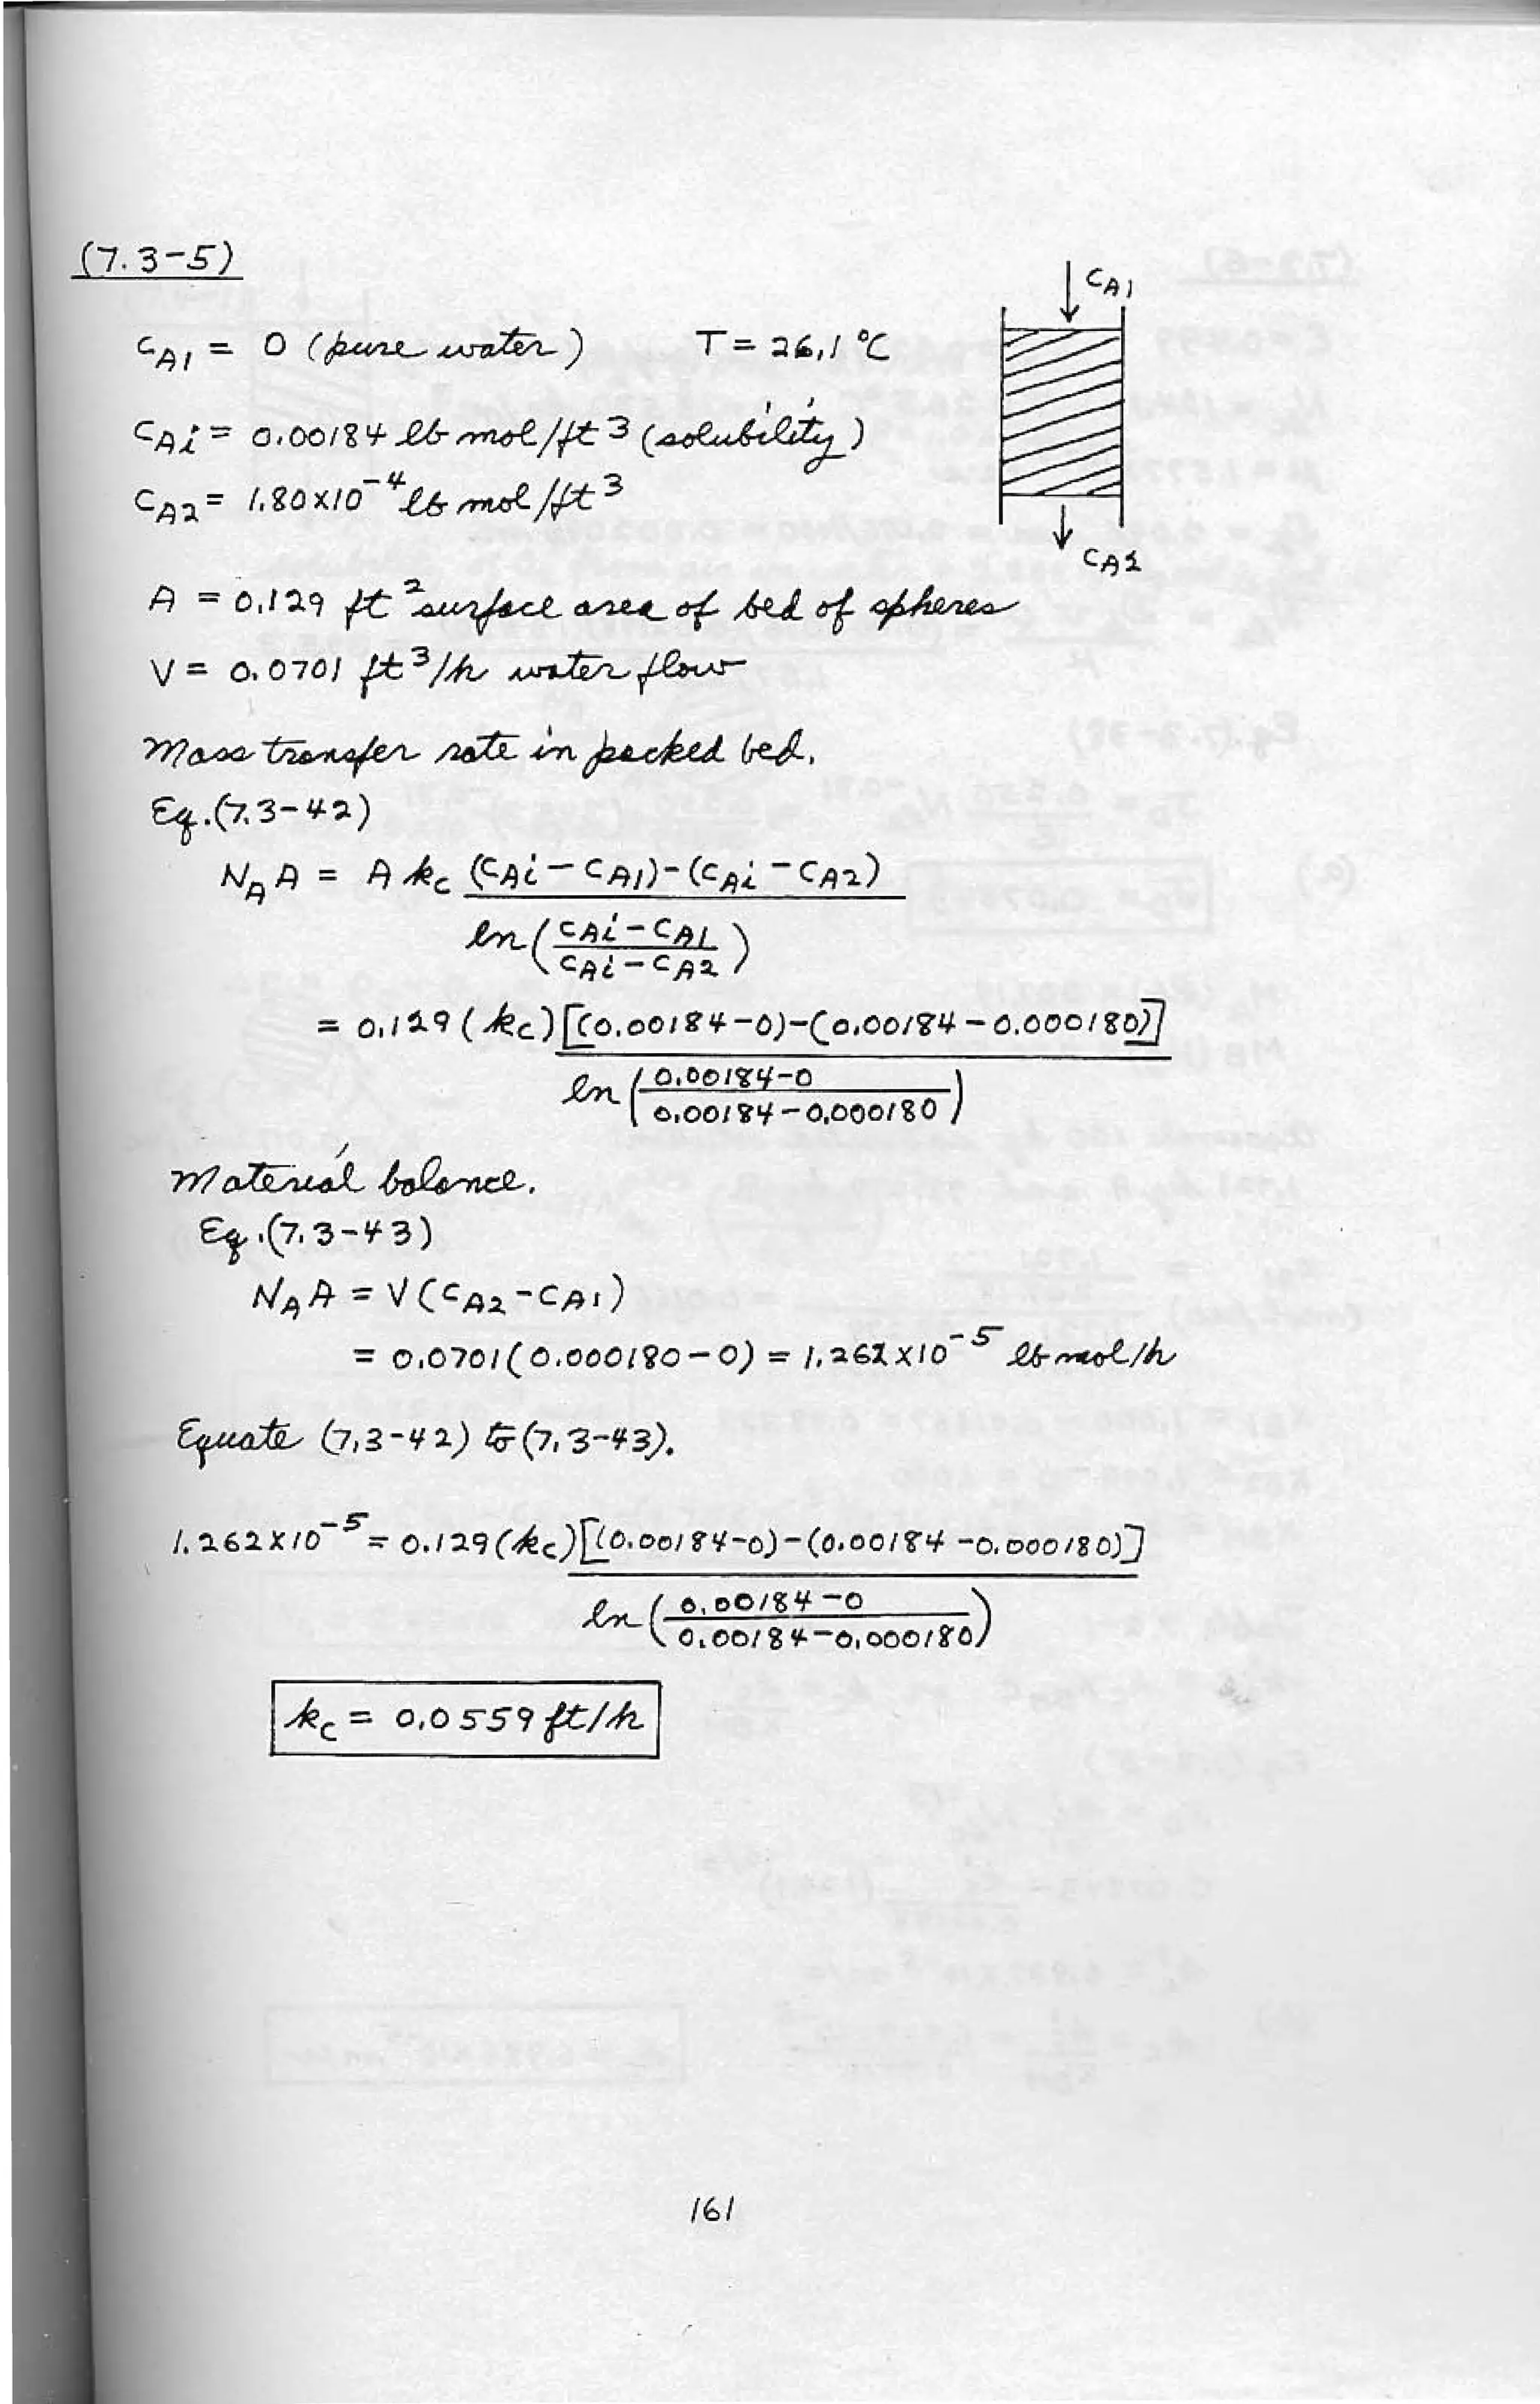 (7.3-5)
C_A1 = 0 (pure water) T = 26.1 °C
C_Ai = 0.00184 lb mol/ft^3 (solubility)
C_A2 = 1.80x10^-4 lb mol/ft^3
C_A1
C_A2
A = 0.129 ft^2 surface area of bed of spheres
V = 0.0701 ft^3/h water flow
Mass transfer rate in packed bed.
Eq.(7.3-42)
N_A A = A k_c (C_Ai - C_A1)-(C_Ai - C_A2)
ln(C_Ai - C_A1 / C_Ai - C_A2)
= 0.129 (k_c)[(0.00184-0)-(0.00184-0.000180)]
ln(0.00184-0 / 0.00184-0.000180)
Material balance.
Eq.(7.3-43)
N_A A = V(C_A2 - C_A1)
= 0.0701(0.000180-0) = 1.262x10^-5 lb mol/h
Equate (7.3-42) to (7.3-43).
1.262x10^-5 = 0.129(k_c)[(0.00184-0)-(0.00184-0.000180)]
ln(0.00184-0 / 0.00184-0.000180)
k_c = 0.0559 ft/h
161